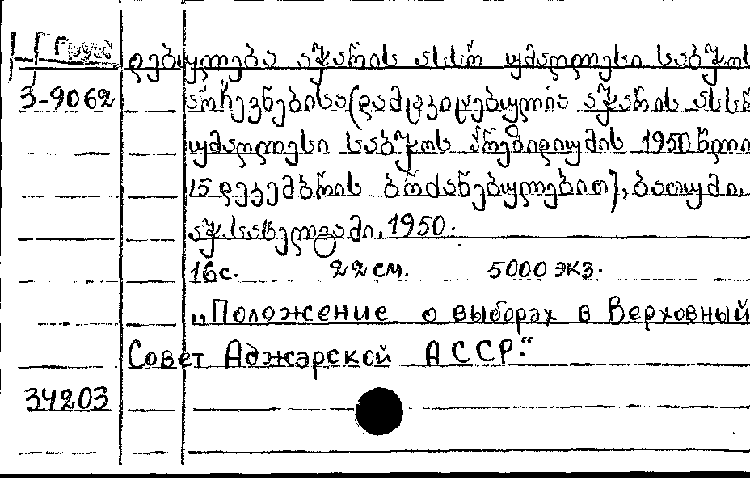 დებულება აჭარის ასსრ უმაღლესი საბჭოს
3-9062 არჩევნებისა(დამტკიცებულია აჭარის ასსრ
უმაღლესი საბჭოს პრეზიდიუმის 1950 წლის
15 დეკემბრის ბრძანებულებით), ბათუმი,
აჭ.სახელგამი, 1950.
16с. 22 см. 5000 экз.
„Положение о выборах в Верховный
Совет Аджарской АССР.“
34203